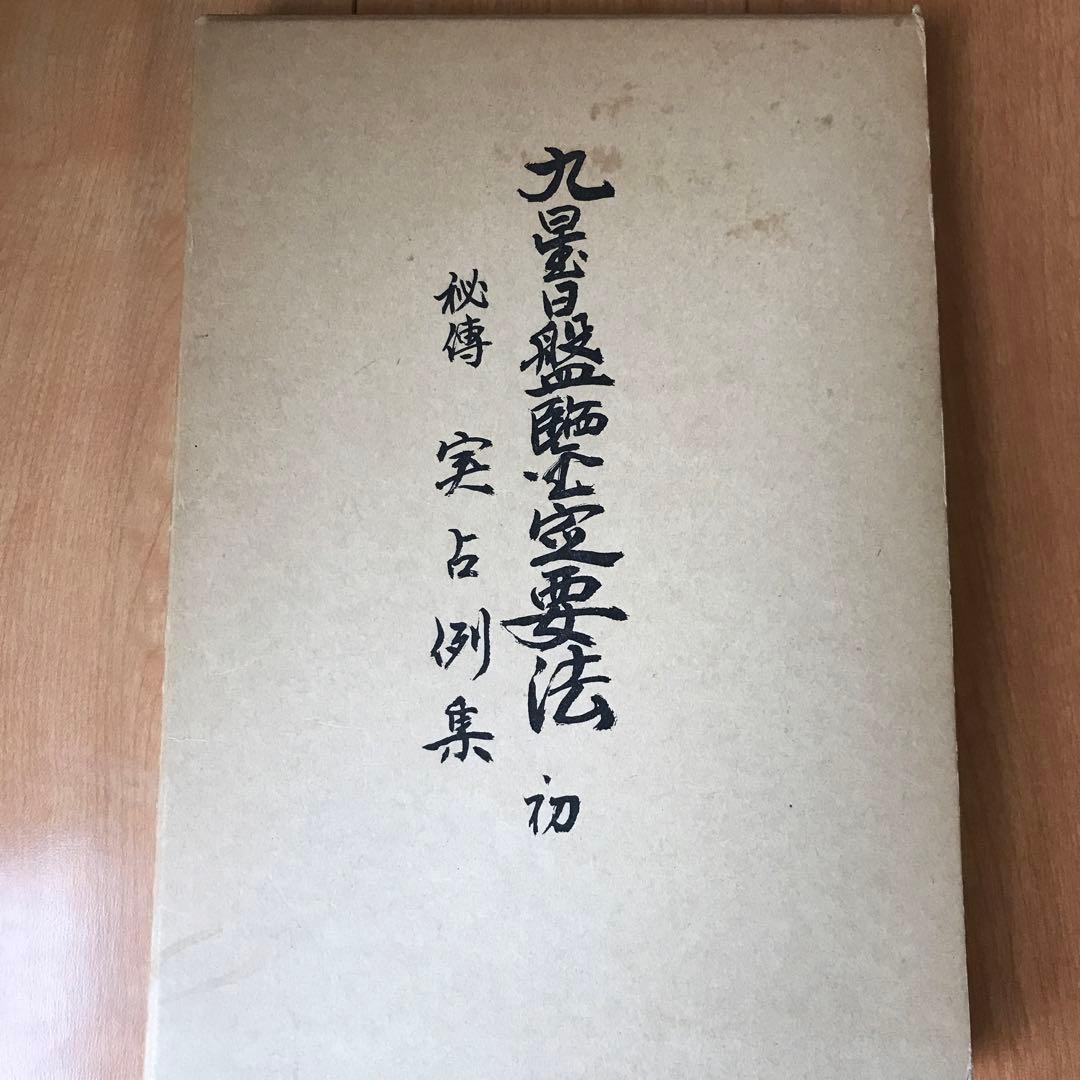 九星日盤鑒定要法 初
秘傳 実占例集